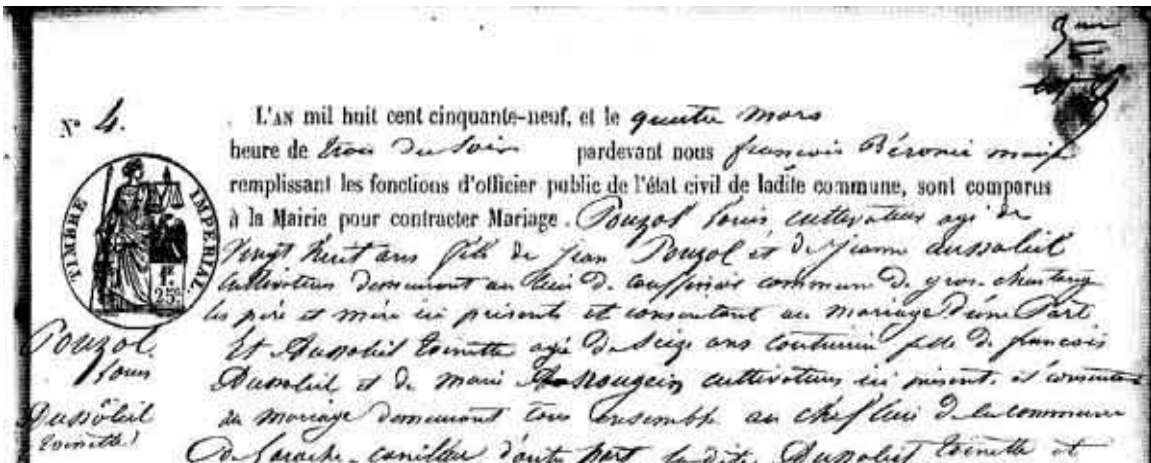 N° 4.
L'AN mil huit cent cinquante-neuf, et le quatre mars
heure de trois du soir pardevant nous françois Béronie maire
remplissant les fonctions d'officier public de l'état civil de ladite commune, sont comparus
à la Mairie pour contracter Mariage. Pouzol Louis cultivateur agé de
Vingt huit ans fils de Jean Pouzol et de Jeanne dussoleil
Cultivateurs demeurant au lieu de commune de gros chastang
les père et mère ici présents et consentant au mariage d'une Part
Et Dussoleil Toinette agée de Seize ans couturière fille de francois
Dussoleil et de marie cultivateurs ici présents et consentant
au mariage demeurant tous ensemble au chef lieu de la commune
De Laroche-canillac d'autre part Dussoleil Toinette et
TIMBRE IMPERIAL
1f. 25c.
Pouzol
Louis
et
Dussoleil
Toinette